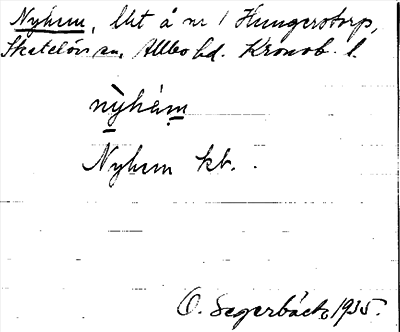 Nyhem, lht å nr 1 Hungerstorp,
Skatelövs sn, Allbo hd. Kronob. l.
nỳhèm
Nyhem kb.
O. Segerbäck 1935.